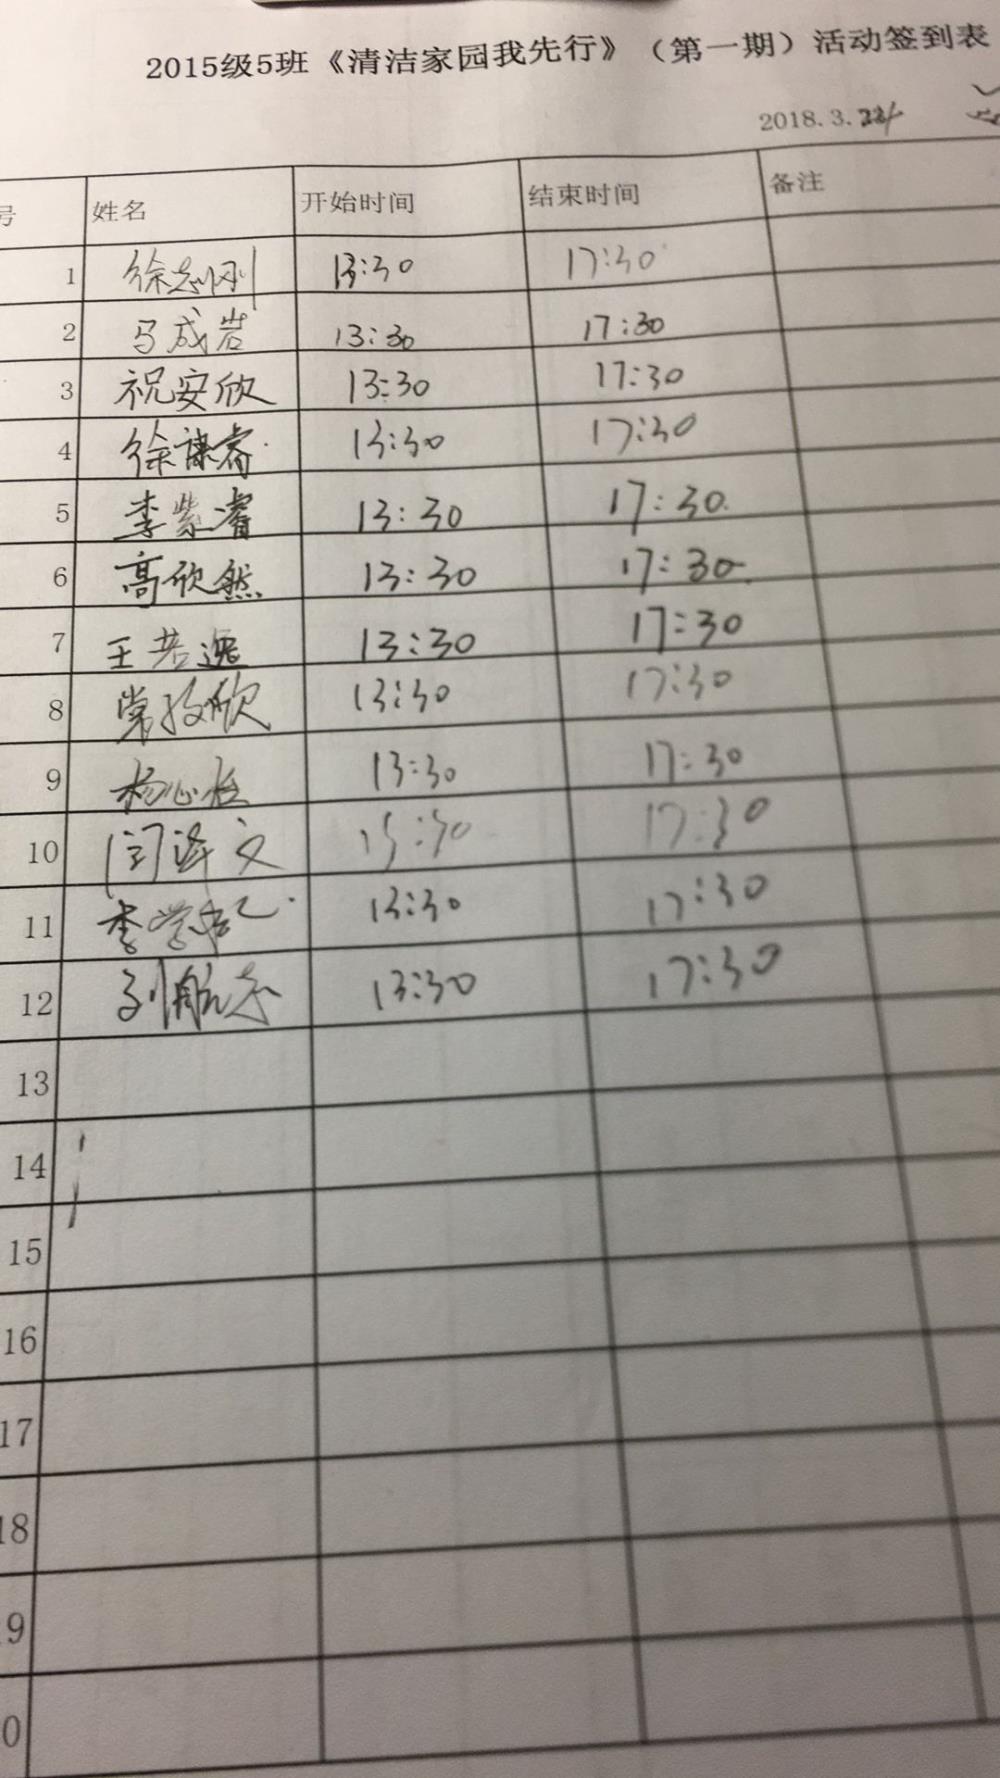 2015级5班《清洁家园我先行》（第一期）活动签到表
2018.3.24
号 姓名 开始时间 结束时间 备注
1 徐志刚 13:30 17:30
2 马成岩 13:30 17:30
3 祝安欣 13:30 17:30
4 徐谦睿 13:30 17:30
5 李紫濬 13:30 17:30
6 高欣然 13:30 17:30
7 王若逸 13:30 17:30
8 常欣 13:30 17:30
9 杨心 13:30 17:30
10 闫泽文 13:30 17:30
11 李学 13:30 17:30
12 刘航 13:30 17:30
13
14
15
16
17
18
9
0